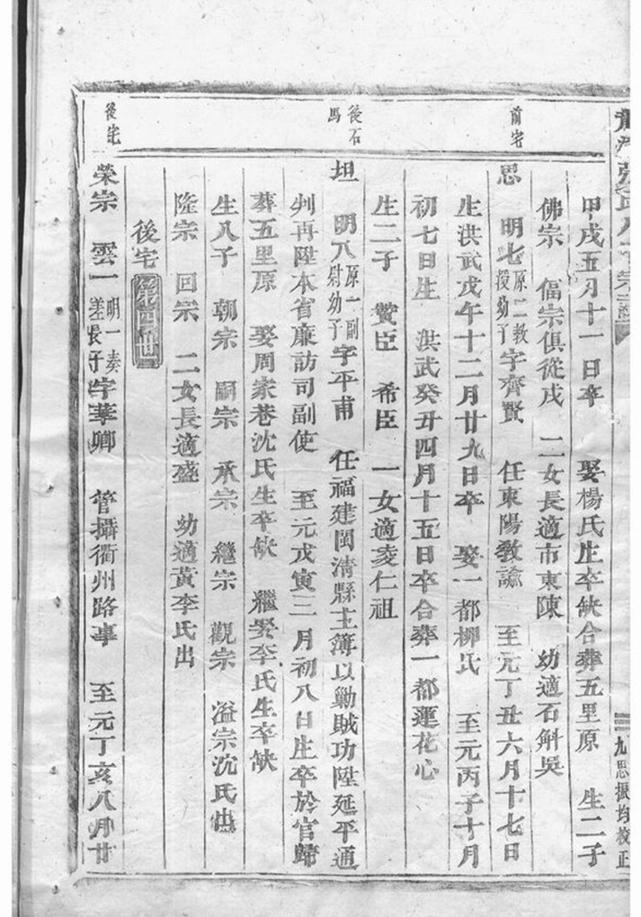 甲戌五月十一日卒　娶楊氏生卒缺合葬五里原　生二子
佛宗　偪宗俱從戌　二女長適市東陳　幼適石斛吳
前宅
思　明七原二教授幼子字齊賢　任東陽教諭　至元丁丑六月十七日
生洪武戊午十二月廿九日卒　娶一都柳氏　至元丙子十月
初七日生　洪武癸丑四月十五日卒合葬一都蓮花心
生二子　贊臣　希臣　一女適凌仁祖
後石馬
坦　明八原一副尉幼子字平甫　任福建閩清縣主簿以勦賊功陞延平通
州再陞本省廉訪司副使　至元戊寅二月初八日生卒於官歸
葬五里原　娶周家巷沈氏生卒缺　繼娶李氏生卒缺
生八子　朝宗　嗣宗　承宗　繼宗　觀宗　溢宗沈氏出
隆宗　回宗　二女長適盛　幼適黃李氏出
後宅第四世
後宅
榮宗　雲一明一奏差長子字華卿　管攝衢州路事　至元丁亥八月廿
九思振均校正